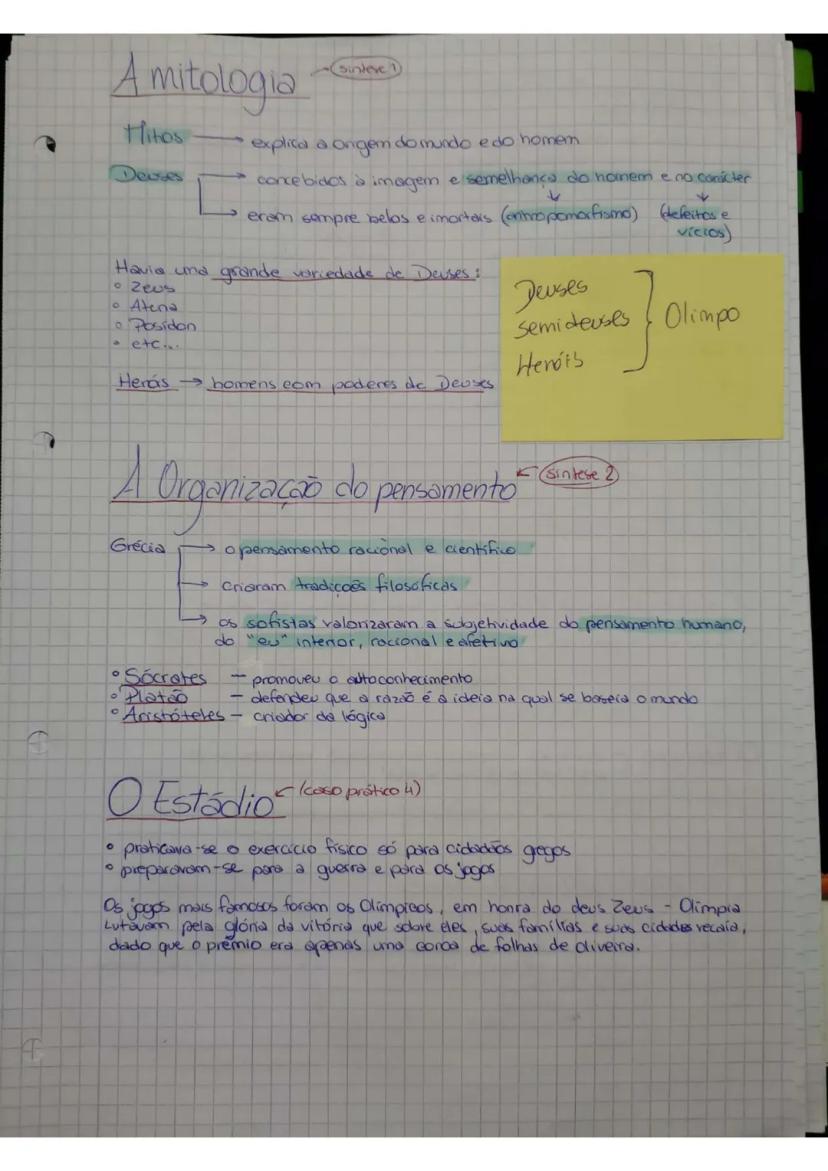 A mitologia
síntese 1
Mitos → explica a origem do mundo e do homem
Deuses → concebidos à imagem e semelhança do homem e no carácter
→ eram sempre belos e imortais (antropomorfismo) (defeitos e
vícios)
Havia uma grande variedade de Deuses:
• Zeus
• Atena
• Posídon
• etc...
Heróis → homens com poderes de Deuses
Deuses
semideuses
Heróis
Olimpo
A Organização do pensamento
síntese 2
Grécia → o pensamento racional e científico
→ criaram tradições filosóficas
→ os sofistas valorizaram a subjetividade do pensamento humano,
do "eu" interior, racional e afetivo
• Sócrates – promoveu o autoconhecimento
• Platão – defendeu que a razão é a ideia na qual se baseia o mundo
• Aristóteles – criador da lógica
O Estádio
(caso prático 4)
• praticava-se o exercício físico só para cidadãos gregos
• preparavam-se para a guerra e para os jogos
Os jogos mais famosos foram os Olímpicos, em honra do deus Zeus – Olímpia
Lutavam pela glória da vitória que sobre eles, suas famílias e suas cidades recaía,
dado que o prémio era apenas uma coroa de folhas de oliveira.